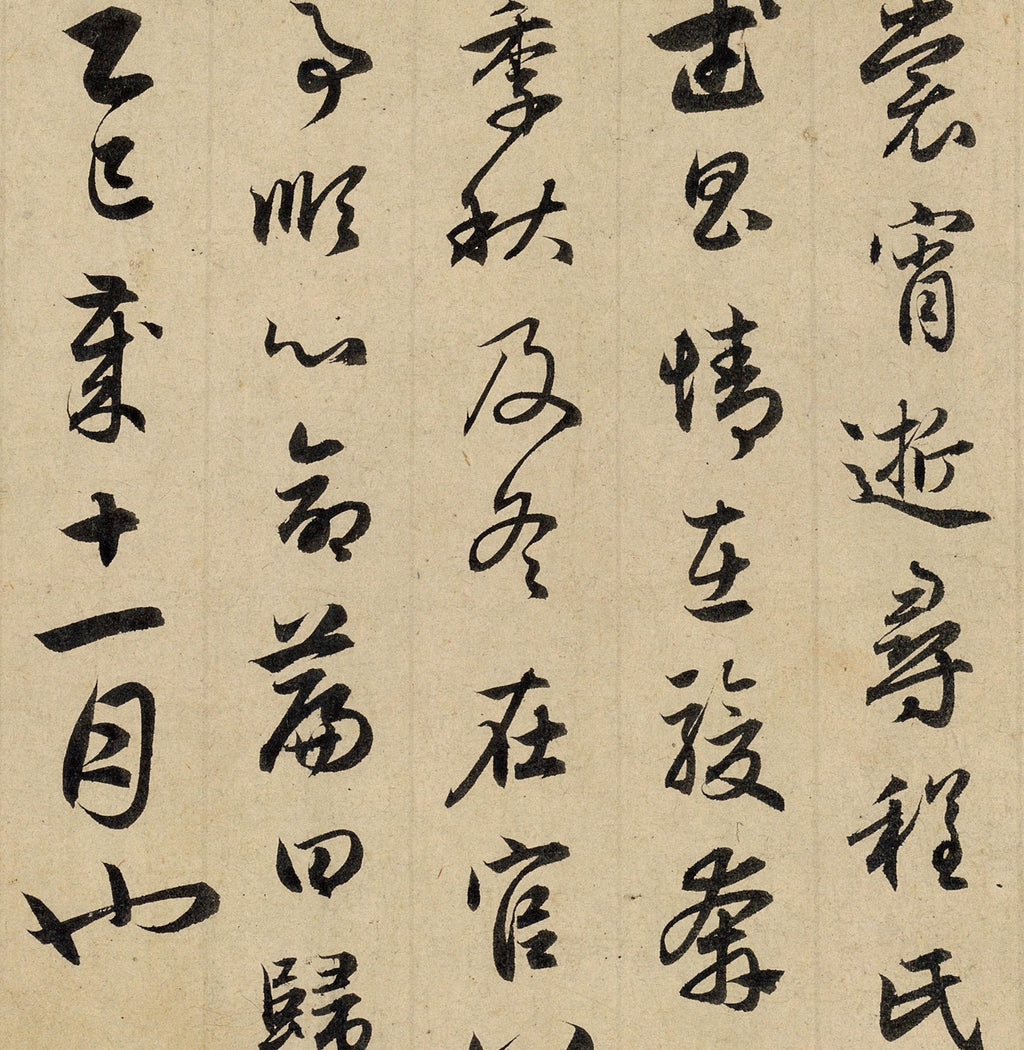 裳宵逝尋程氏
武昌情在駿奔
季秋及冬在官
事順心命篇曰歸
乙巳歲十一月也